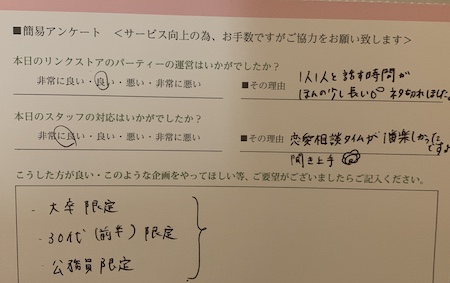 ■簡易アンケート <サービス向上の為、お手数ですがご協力をお願い致します>
本日のリンクストアのパーティーの運営はいかがでしたか?
非常に良い・良い・悪い・非常に悪い
■その理由 1人1人と話す時間が
ほんの少し長い
本日のスタッフの対応はいかがでしたか?
非常に良い・良い・悪い・非常に悪い
■その理由 恋愛相談タイムが楽しかった
ですよ
聞き上手
こうした方が良い・このような企画をやってほしい等、ご要望がございましたらご記入ください。
- 大卒限定
- 30代(前半)限定
- 公務員限定